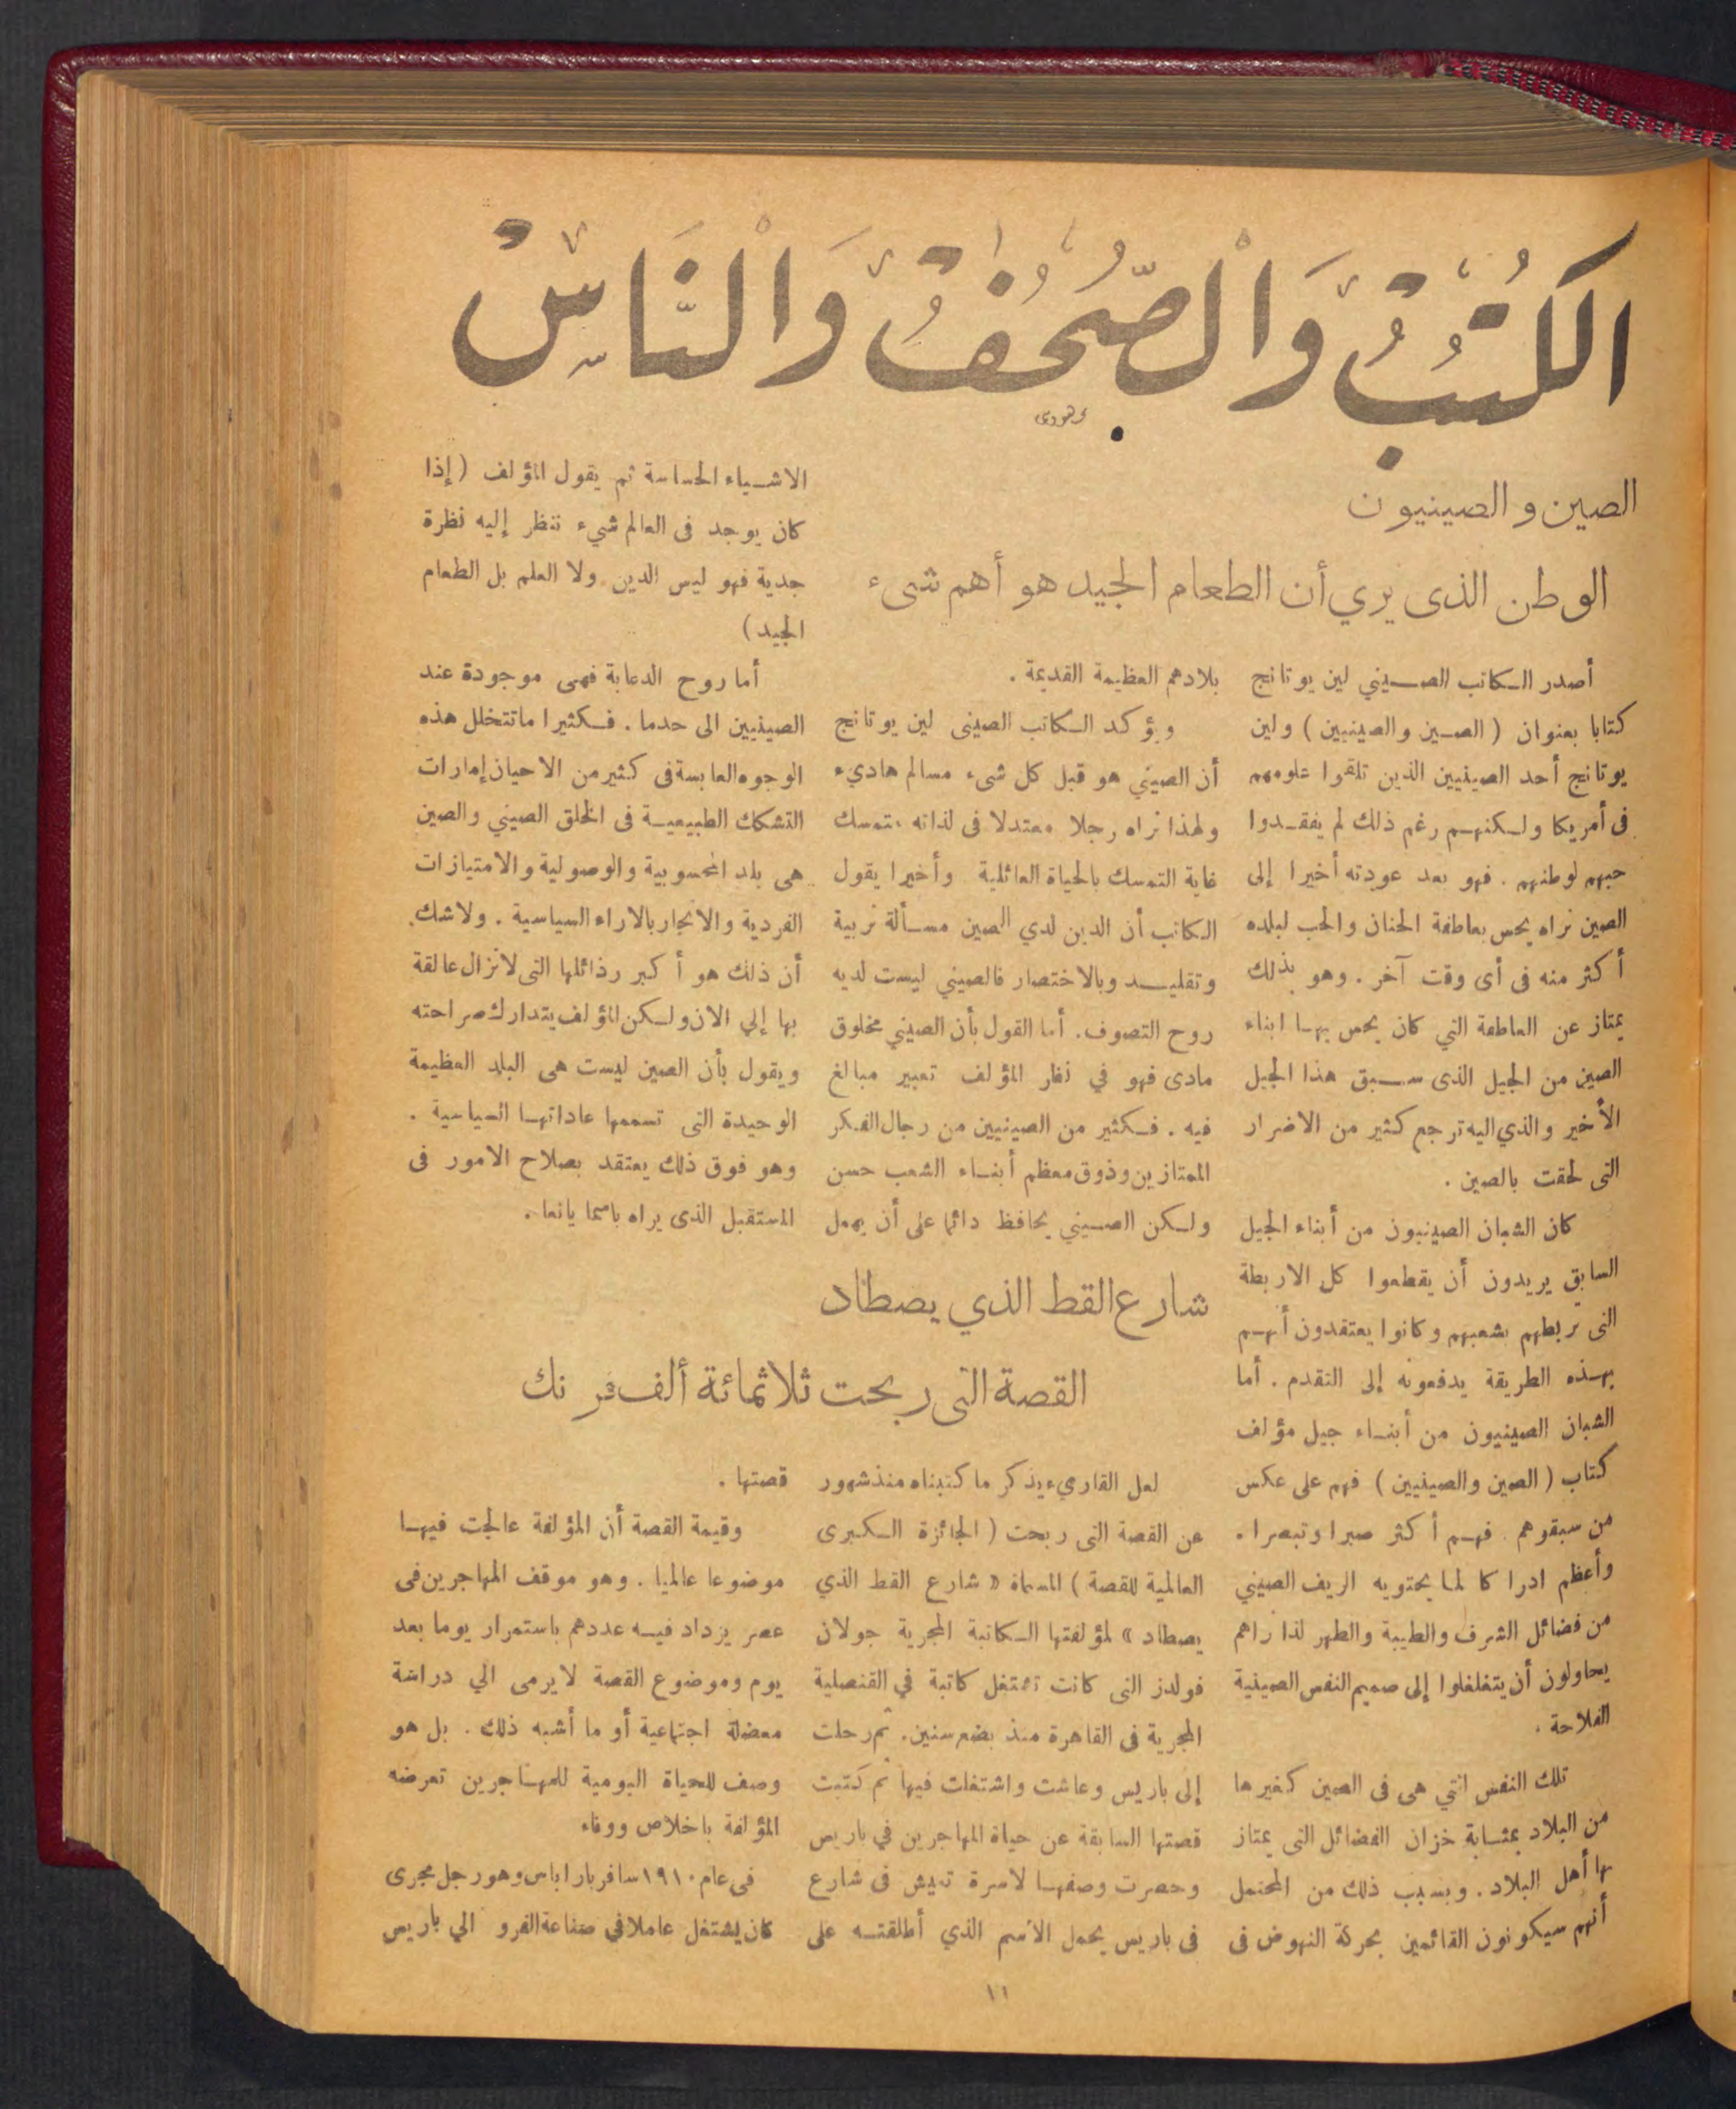 الكُتُبُ وَالْصُّحُفُ وَالْنَّاسْ
الصين والصينيون
الوطن الذى يري أن الطعام الجيد هو أهم شىء
أصدر الكاتب الصيني لين يوتانج
كتابا بعنوان ( الصين والصينيين ) ولين
يوتانج أحد الصينيين الذين تلقوا علومهم
فى أمريكا ولكنهم رغم ذلك لم يفقدوا
حبهم لوطنهم . فهو بعد عودته أخيرا إلى
الصين نراه يحس بعاطفة الحنان والحب لبلده
أكثر منه فى أى وقت آخر . وهو بذلك
يمتاز عن العاطفة التي كان يحس بها ابناء
الصين من الجيل الذى سبق هذا الجيل
الأخير والذي اليه ترجع كثير من الاضرار
التى لحقت بالصين .
كان الشبان الصينيون من أبناء الجيل
السابق يريدون أن يقطعوا كل الاربطة
التى تربطهم بشعبهم وكانوا يعتقدون أنهم
بهذه الطريقة يدفعونه إلى التقدم . أما
الشبان الصينيون من أبناء جيل مؤلف
كتاب ( الصين والصينيين ) فهم على عكس
من سبقوهم . فهم أكثر صبرا وتبصرا .
وأعظم ادراكا لما يحتويه الريف الصيني
من فضائل الشرف والطيبة والطهر لذا راهم
يحاولون أن يتغلغلوا إلى صميم النفس الصينية
الفلاحة .
تلك النفس التي هى فى الصين كغيرها
من البلاد بمثابة خزان الفضائل التى يمتاز
بها أهل البلاد . وبسبب ذلك من المحتمل
أنهم سيكونون القائمين بحركة النهوض فى
بلادهم العظيمة القديمة .
ويؤكد الكاتب الصينى لين يوتانج
أن الصيني هو قبل كل شىء مسالم هاديء
ولهذا نراه رجلا معتدلا فى لذاته يتمسك
غاية التمسك بالحياة العائلية وأخيرا يقول
الكاتب أن الدين لدي الصين مسألة تربية
وتقليد وبالاختصار فالصيني ليست لديه
روح التصوف. أما القول بأن الصيني مخلوق
مادى فهو في نظر المؤلف تعبير مبالغ
فيه . فكثير من الصينيين من رجال الفكر
الممتازين وذوق معظم أبناء الشعب حسن
ولكن الصيني يحافظ دائما على أن يهمل
الاشياء الحساسة ثم يقول المؤلف ( إذا
كان يوجد فى العالم شيء ننظر إليه نظرة
جدية فهو ليس الدين ولا العلم بل الطعام
الجيد )
أما روح الدعابة فهى موجودة عند
الصينيين الى حدما . فكثيرا ماتتخلل هذه
الوجوه العابسة فى كثير من الاحيان إمارات
التشكك الطبيعية فى الخلق الصيني والصين
هى بلد المحسوبية والوصولية والامتيازات
الفردية والاتجار بالاراء السياسية . ولاشك
أن ذلك هو أكبر رذائلها التى لا تزال عالقة
بها إلي الان ولكن المؤلف يتدارك صراحته
ويقول بأن الصين ليست هى البلد العظيمة
الوحيدة التى تسممها عاداتها السياسية .
وهو فوق ذلك يعتقد بصلاح الامور فى
المستقبل الذى يراه باسما يانعا .
شارع القط الذي يصطاد
القصة التى ربحت ثلاثمائة ألف فرنك
لعل القاريء يذكر ما كتبناه منذ شهور
عن القصة التى ربحت ( الجائزة الكبرى
العالمية للقصة ) المسماة « شارع القط الذي
يصطاد » لمؤلفتها الكاتبة المجرية جولان
فولدز التى كانت تشتغل كاتبة في القنصلية
المجرية فى القاهرة منذ بضع سنين. ثم رحلت
إلى باريس وعاشت واشتغلت فيها ثم كتبت
قصتها السابقة عن حياة المهاجرين في باريس
وحصرت وصفها لاسرة تعيش فى شارع
فى باريس يحمل الاسم الذي أطلقته على
قصتها .
وقيمة القصة أن المؤلفة عالجت فيها
موضوعا عالميا . وهو موقف المهاجرين فى
عصر يزداد فيه عددهم باستمرار يوما بعد
يوم وموضوع القصة لا يرمى الي دراسة
معضلة اجتماعية أو ما أشبه ذلك . بل هو
وصف للحياة اليومية للمهاجرين تعرضه
المؤلفة باخلاص ووفاء
فى عام ١٩١٠ سافر بار اباس وهو رجل مجرى
كان يشتغل عاملا في صناعة الفرو الي باريس
١١